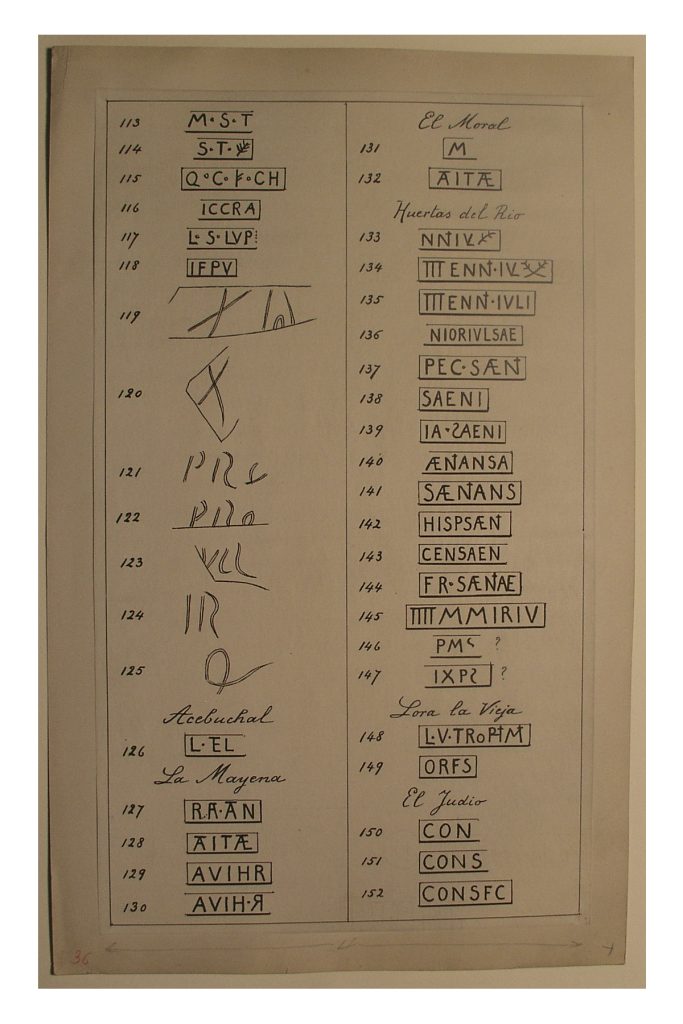 113 M·S·T
114 S·T·
115 Q°C·F·CH
116 ICCRA
117 L·S·LVP
118 IFPV
119
120
121 PR
122
123
124 IR
125 Q
Acebuchal
126 L·EL
La Mayena
127 R.A·AN
128 AITÆ
129 AVIHR
130 AVIH·Я
El Moral
131 M
132 AITÆ
Huertas del Rio
133 NNIV
134 IIII ENN·IV
135 IIII ENN·IVLI
136 NIORIVLSAE
137 PEC·SÆN
138 SAENI
139 IA·SAENI
140 ÆNANSA
141 SÆNANS
142 HISPSÆN
143 CENSAEN
144 FR·SÆNAE
145 IIIII MMIRIV
146 PMS ?
147 IXPS ?
Lora la Vieja
148 L·V·TROPIM
149 ORFS
El Judio
150 CON
151 CONS
152 CONSFC
36